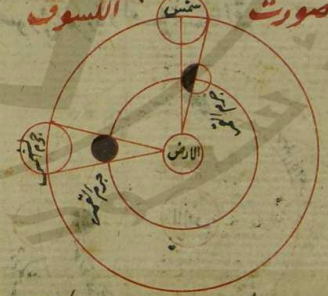 صورت الكسوف
شمس
جرم القمر
الارض
جرم شمس
جرم القمر